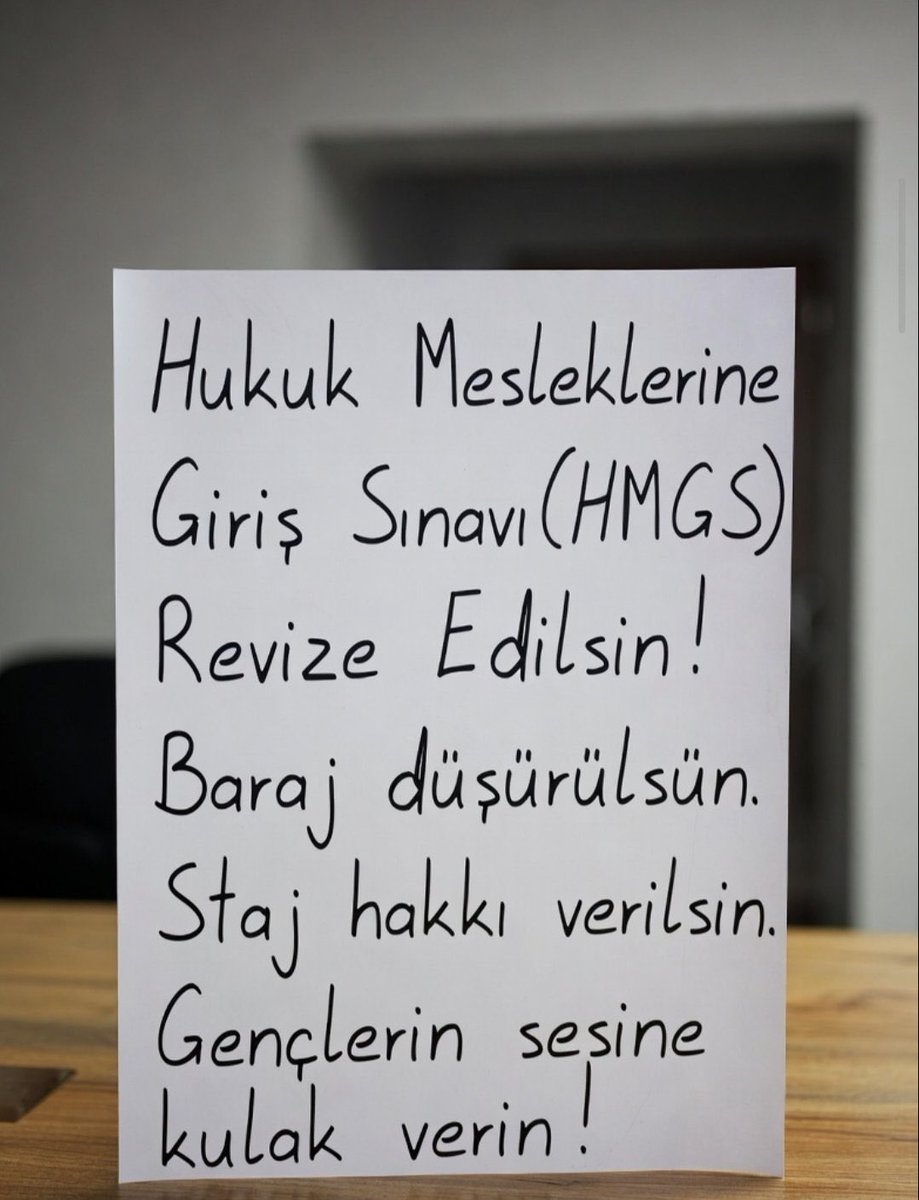 Hukuk Mesleklerine
Giriş Sınavı(HMGS)
Revize Edilsin!
Baraj düşürülsün.
Staj hakkı verilsin.
Gençlerin sesine
kulak verin!